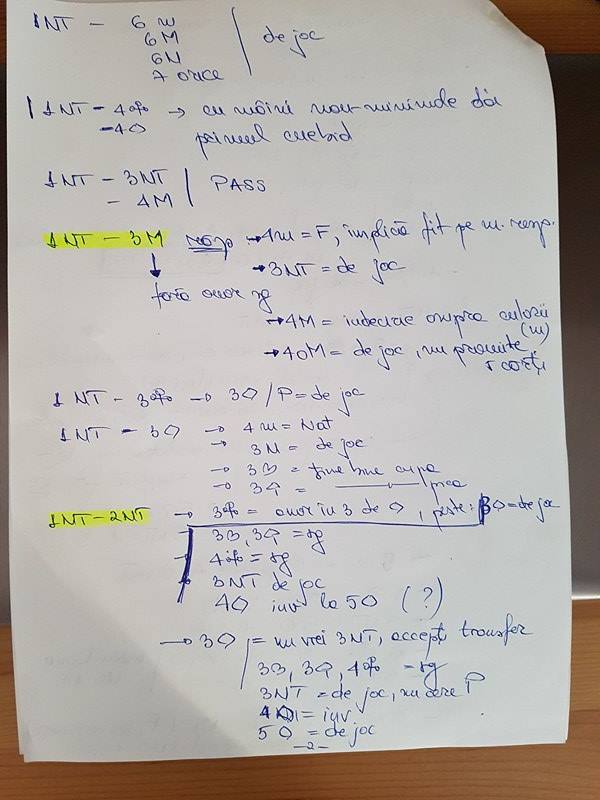 1NT - 6m
6M
6N
7 orice
de joc
1NT - 4♣ → cu mâini non-minimale dă
- 4♢ primul cuebid
1NT - 3NT | PASS
- 4M
1NT - 3M resp → 4m = F, implică fit pe m. resp.
→ 3NT = de joc
fără onor sg
→ 4M = indecizie asupra culorii (m)
→ 4OM = de joc, nu promite 5 cărți
1NT - 3♣ → 3♢ / P = de joc
1NT - 3♢ → 4m = Nat
→ 3N = de joc
→ 3♡ = ține bine cupa
→ 3♤ = —————— pica
1NT - 2NT → 3♣ = onor în 3 de ♢, peste: 3♢ = de joc
→ 3♡, 3♤ = sg
→ 4♣ = sg
→ 3NT de joc
4♢ inv la 5♢ (?)
→ 3♢ = nu vrei 3NT, accepți transfer
3♡, 3♤, 4♣ = sg
3NT = de joc, nu cere P
4♢ = inv
5♢ = de joc
-2-